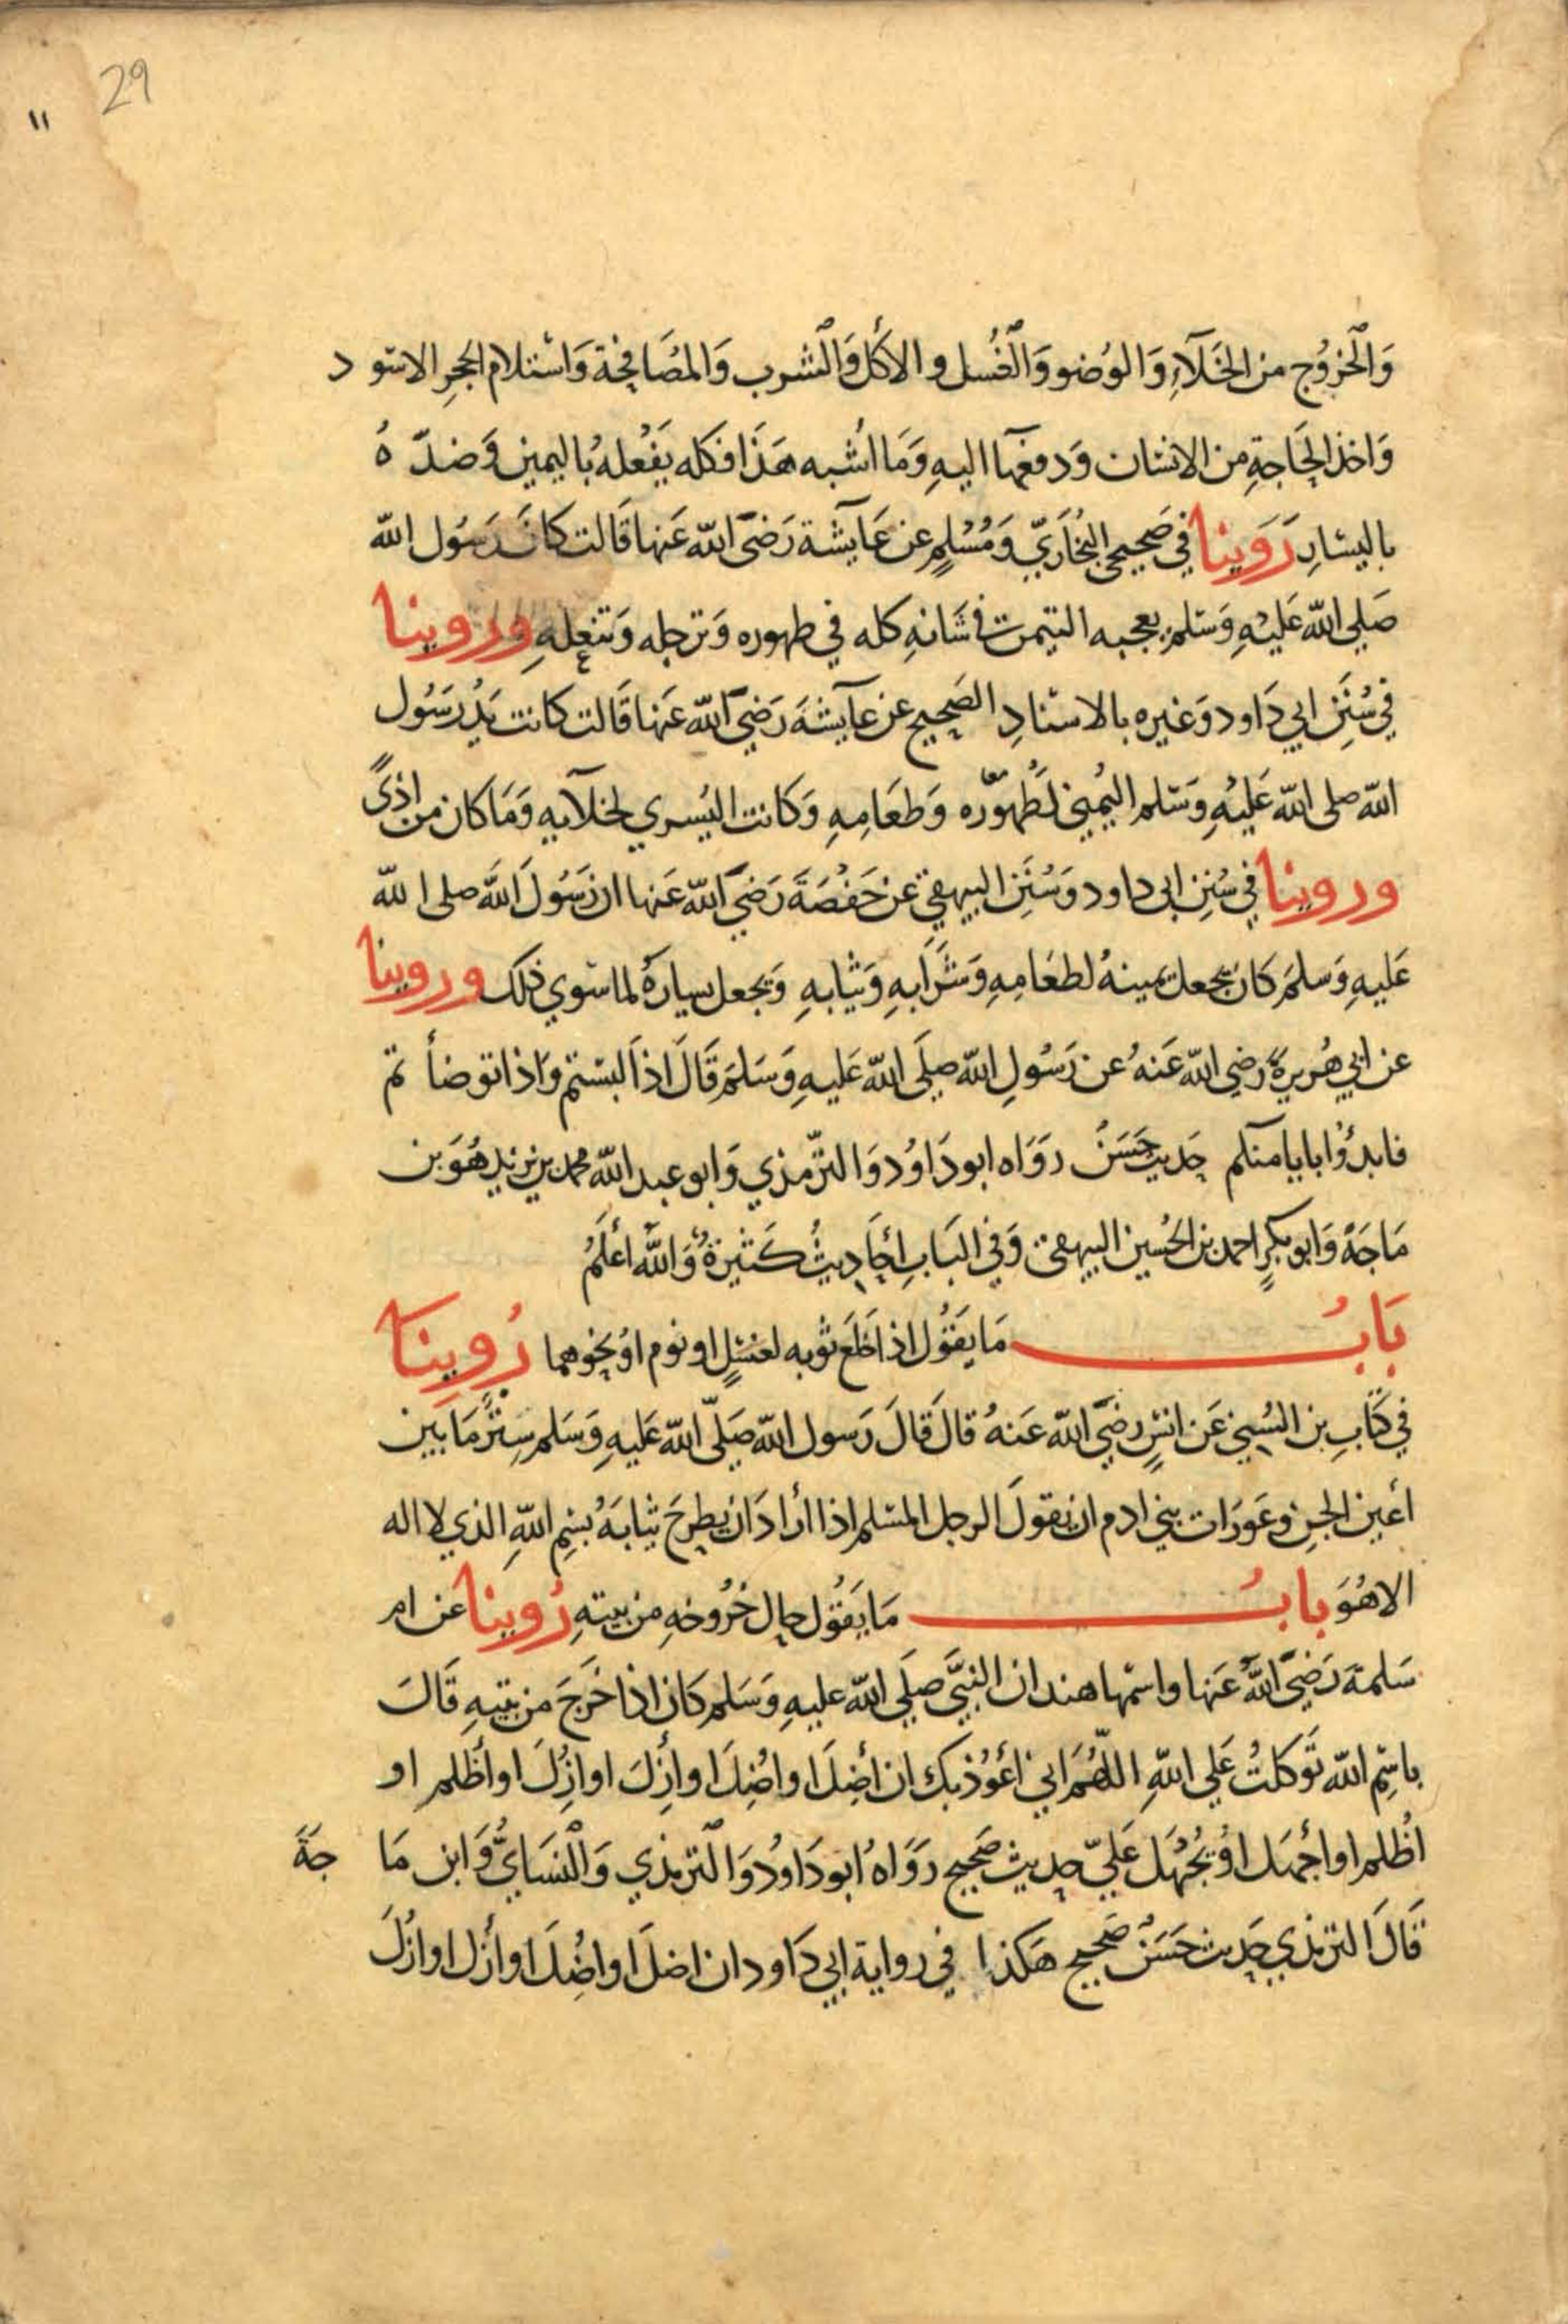 29
١١
وَٱلْخرُوُج من الخَلَآءِ وَالوُضو وَٱلْغُسل والاكْل وَٱلْشرب وَالمُصَافحَة وَاسْتلام الحَجرِ الاسْود
وَاخذ الحَاجَةِ من الانسَان وَدفعهَا اليهِ وَمَا اشْبه هَذَا فكله يَفْعلهُ باليمين وَضدّهُ
باليسَارِ رَوَينا في صَحيحي البخَاريّ وَمُسْلمٍ عن عَايشَة رَضيَ الله عَنها قَالت كانَ رَسُول الله
صَلى الله عَليْهِ وَسَلم يعجبه التيمن في شَانهِ كله في طهوره وَترجله وَتنعلهِ وروينا
في سُنَن ابي دَاود وَغيره بالاسْنادِ الصَحيح عن عَآيشَةَ رَضيَ الله عَنها قَالت كانت يَدُ رَسُول
الله صلى الله عَليْهِ وَسَلم اليُمنى لطُهوره وَطعَامِهِ وَكانت اليُسرى لخلآيه وَمَا كان من اذىً
وروينا في سُنن ابى داود وَسُنَن البيهقي عن حَفْصَةَ رَضيَ الله عَنها ان رَسُولَ الله صلى الله
عَليهِ وَسلمَ كَان يجعل يمينهُ لطعَامِهِ وَشَرَابَهِ وَثيابهِ وَيجعل يسارهُ لما سوي ذلك وروينا
عن ابي هُريرةَ رضي الله عَنهُ عن رَسُولِ الله صلَى الله عَليهِ وَسَلمَ قَالَ اذا لبستم وَاذا توضأتم
فابدؤا بايامنكم حَديث حَسَنٌ روَاه ابو دَاوُد وَالترّمذي وَابو عبد الله محمد بن يزيد هُوَ بن
مَاجَهْ وَابو بكرٍ احمد بن الحُسين البيهقى وَفي البَابِ أحَادِيثُ كَثيرَةٌ وَالله أعلَمُ
بَابُ مَا يَقوُل اذا خَلعَ ثوبه لغسْلٍ او نوم اوْ نحوهما رُوينَا
في كتَابِ بن السُني عَن انسٍ رضيَ الله عَنهُ قالَ قَالَ رَسول الله صَلَّى الله عَليهِ وَسَلم سِترُ مَا بين
أعين الجن وعَوَرَات بني ادم ان يقولَ الرجل المسْلم اذا أرَادَ ان يطرحَ ثيابَهُ بسْمِ اللهِ الذي لا اله
الا هُوَ بابُ مَا يَقوُل حال خُرُوجهِ من بيتهِ رُوينا عن ام
سَلمة رَضيَ اللهُ عَنها واسمُها هند ان النبيَّ صلَى الله عليهِ وَسَلم كَان اذا خَرَجَ من بيتهِ قَالَ
باسْمِ الله تَوَكلتُ عَلى اللهِ اللّهُمَّ اني أعُوُذ بكَ ان أضِلَ او اضُلَ او أزِلَ او ازِلَ او أظلم او
اظْلم او أجْهَل اوْ يُجْهَل عَليَّ حديث صَحيح رَوَاهُ ابو دَاودُ وَٱلترمذي وَٱلنسَايُّ وَابن مَاجَةَ
قَالَ الترمذي حَديث حَسَنٌ صَحيح هَكذا في رواية ابي دَاود ان اضلَ او اضُلَ او أزل او ازُلَ